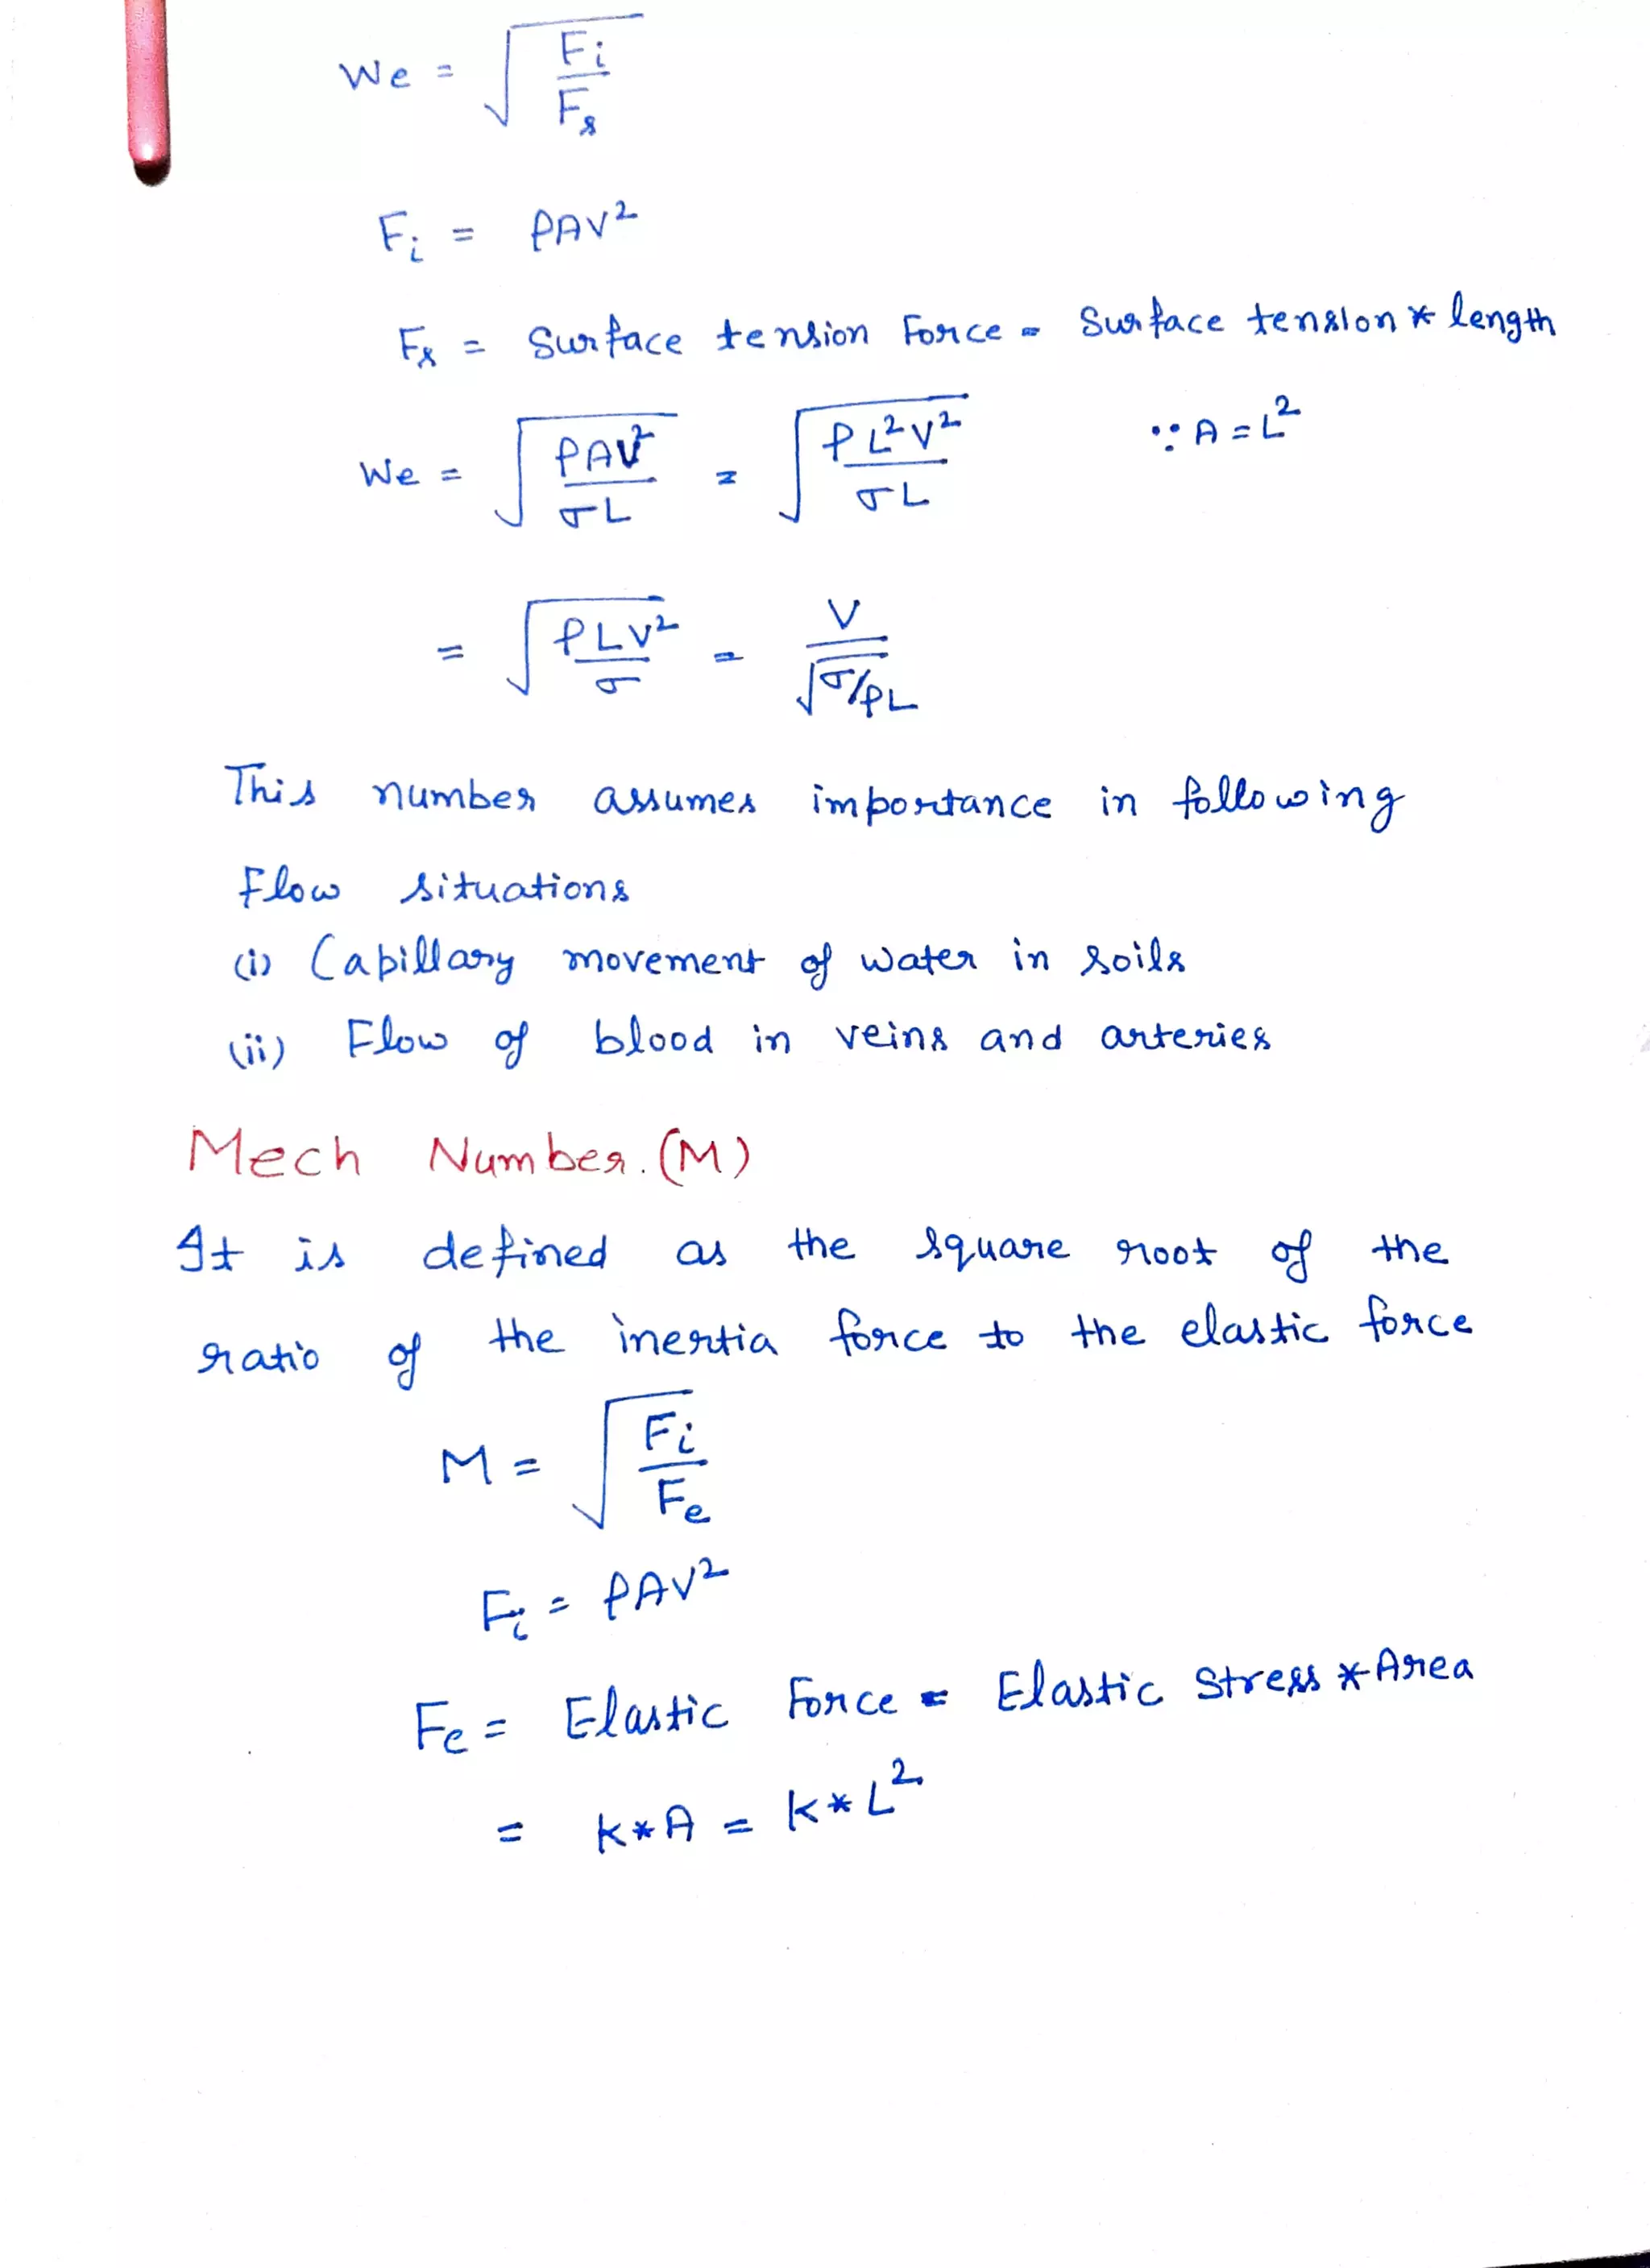 We = √(Fi/Fs)
Fi = ρAV²
Fs = Surface tension Force = Surface tension * length
We = √(ρAV²/σL) = √(ρL²V²/σL) ∵ A = L²
= √(ρLV²/σ) = V/√(σ/ρL)
This number assumes importance in following
Flow situations
(i) Capillary movement of water in soils
(ii) Flow of blood in veins and arteries
Mech Number. (M)
It is defined as the square root of the
ratio of the inertia force to the elastic force
M = √(Fi/Fe)
Fi = ρAV²
Fe = Elastic Force = Elastic Stress * Area
= K * A = K * L²